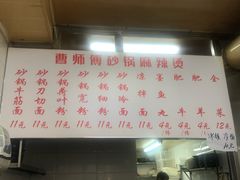 曹师傅砂锅麻辣烫
砂锅牛筋面 11元
砂锅刀切面 11元
砂锅荷叶面 11元
砂锅宽粉 11元
砂锅细粉 11元
砂锅冷面 11元
凉拌面 11元
墨鱼丸 4元
肥牛 4元
肥羊 4元
全菜 12元